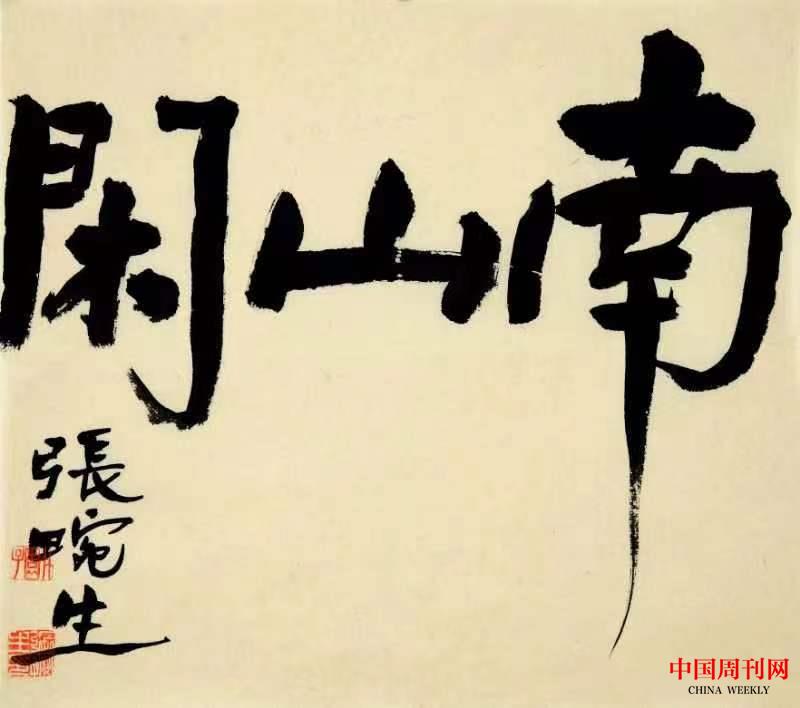 南山閑
張畹生
中国周刊网
CHINA WEEKLY